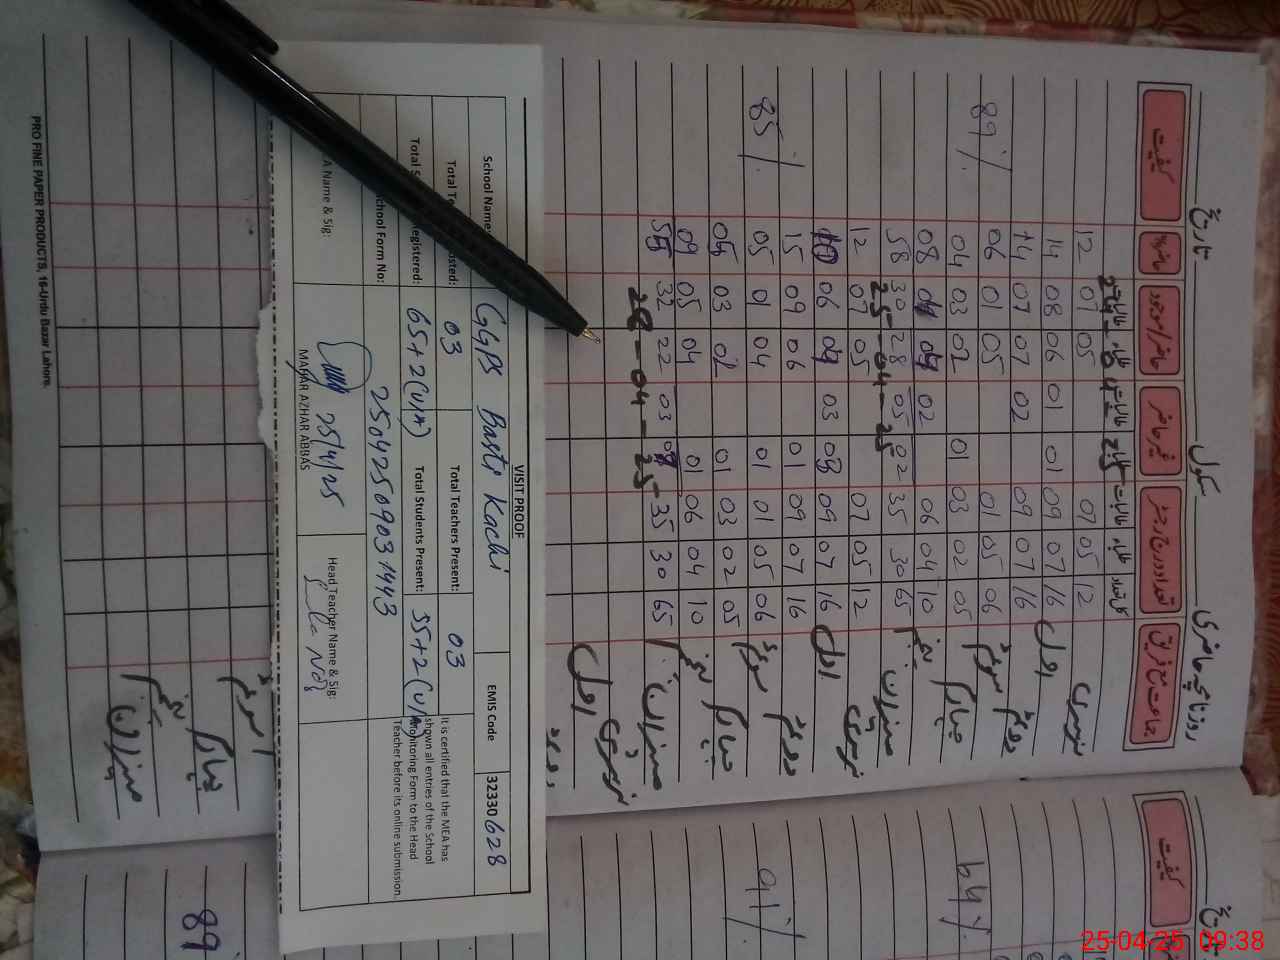 تاریخ سکول روزنامچہ حاضری
کیفیت حاضر میزان حاضر/موجود غیر حاضر تعداد درج رجسٹر جماعت مع فریق
طالبات طلباء طالبات طلباء طالبات طلباء کل تعداد
24-04-25
12 07 05 07 05 12 نرسری
14 08 06 01 01 09 07 16 اول
14 07 07 02 09 07 16 دوئم
89% 06 01 05 01 05 06 سوئم
04 03 02 01 03 02 05 چہارم
08 04 04 02 06 04 10 پنجم
58 30 28 05 02 35 30 65 میزان
25-04-25
12 07 05 07 05 12 نرسری
10 06 04 03 03 09 07 16 اول
15 09 06 01 09 07 16 دوئم
85% 05 01 04 01 01 05 06 سوئم
05 03 02 01 03 02 05 چہارم
09 05 04 01 06 04 10 پنجم
55 32 22 03 35 30 65 میزان
28-04-25
نرسری
اول
دوئم
VISIT PROOF
School Name: GGPS Basti Kachi EMIS Code 32330628
Total Te sted: 03 Total Teachers Present: 03
Total S egistered: 65+2(U/A) Total Students Present: 55+2(U/A)
chool Form No: 2504250903 1443
A Name & Sig: 25/4/25
MAHAR AZHAR ABBAS
Head Teacher Name & Sig:
It is certified that the MEA has
shown all entries of the School
Monitoring Form to the Head
Teacher before its online submission.
سوئم
چہارم
پنجم
میزان
PRO FINE PAPER PRODUCTS, 16-Urdu Bazar Lahore.
تاریخ
کیفیت
64%
91%
89
25-04-25 09:38